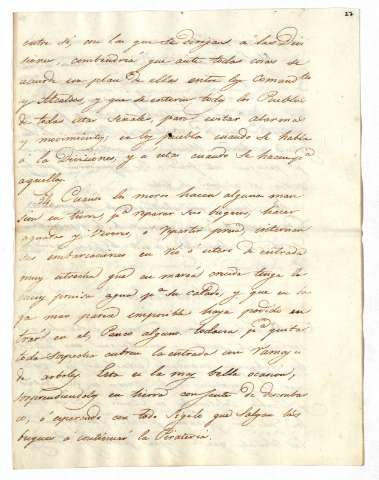 27
entre sí, en las que se dirijan á las Divi
siones, combendria que ante todas cosas se
acuerde un plan de ellas entre los Comand.tes
y Alcaldes, y que se enteren todos los Pueblos
de todas estas Señales, para evitar alarmas
y movimientos; en los pueblos cuando se habla
á la Divisiones, y a estas cuando se hacen p.a
aquellos.
Cuando los moros hacen alguna man
sion en tierra, p.a reparar sus buques, hacer
aguada y viveres, ó repartir presas, internan
sus embarcaciones en rio ó estero de entrada
muy estrecha que en marea crecida tenga la
muy precisa agua p.a su calado, y que en la
baja mar parece imposible haya podido en
trar en el, Panco alguno todavia p.a quitar
toda sospecha cubren la entrada con ramas
de arboles. Esta es la mas bella ocasion,
sorprendiendolos en tierra con gente de desembar
co, ó esperando con todo sigilo que salgan los
buques a continuar la Pirateria.